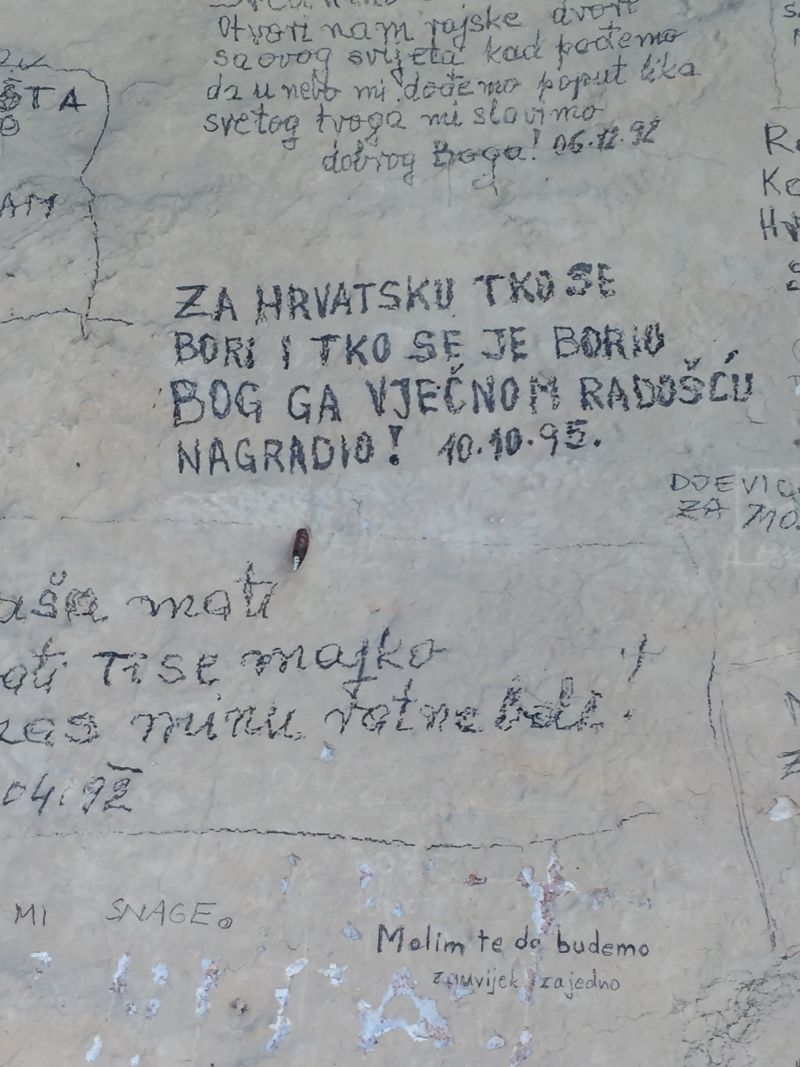 Otvori nam rajske dvori
sa ovog svijeta kad pođemo
da u nebo mi dođemo poput lika
svetog tvoga mi slavimo
dobrog Boga! 06.12.92
ŠTA
AM
ZA HRVATSKU TKO SE
BORI I TKO SE JE BORIO
BOG GA VJEČNOM RADOŠĆU
NAGRADIO! 10.10.95.
DJEVIC
ZA MO
aša mati
ati Ti se majko
nas minu ratne boli.
04.92
MI SNAGE.
Molim te da budemo
zauvijek zajedno